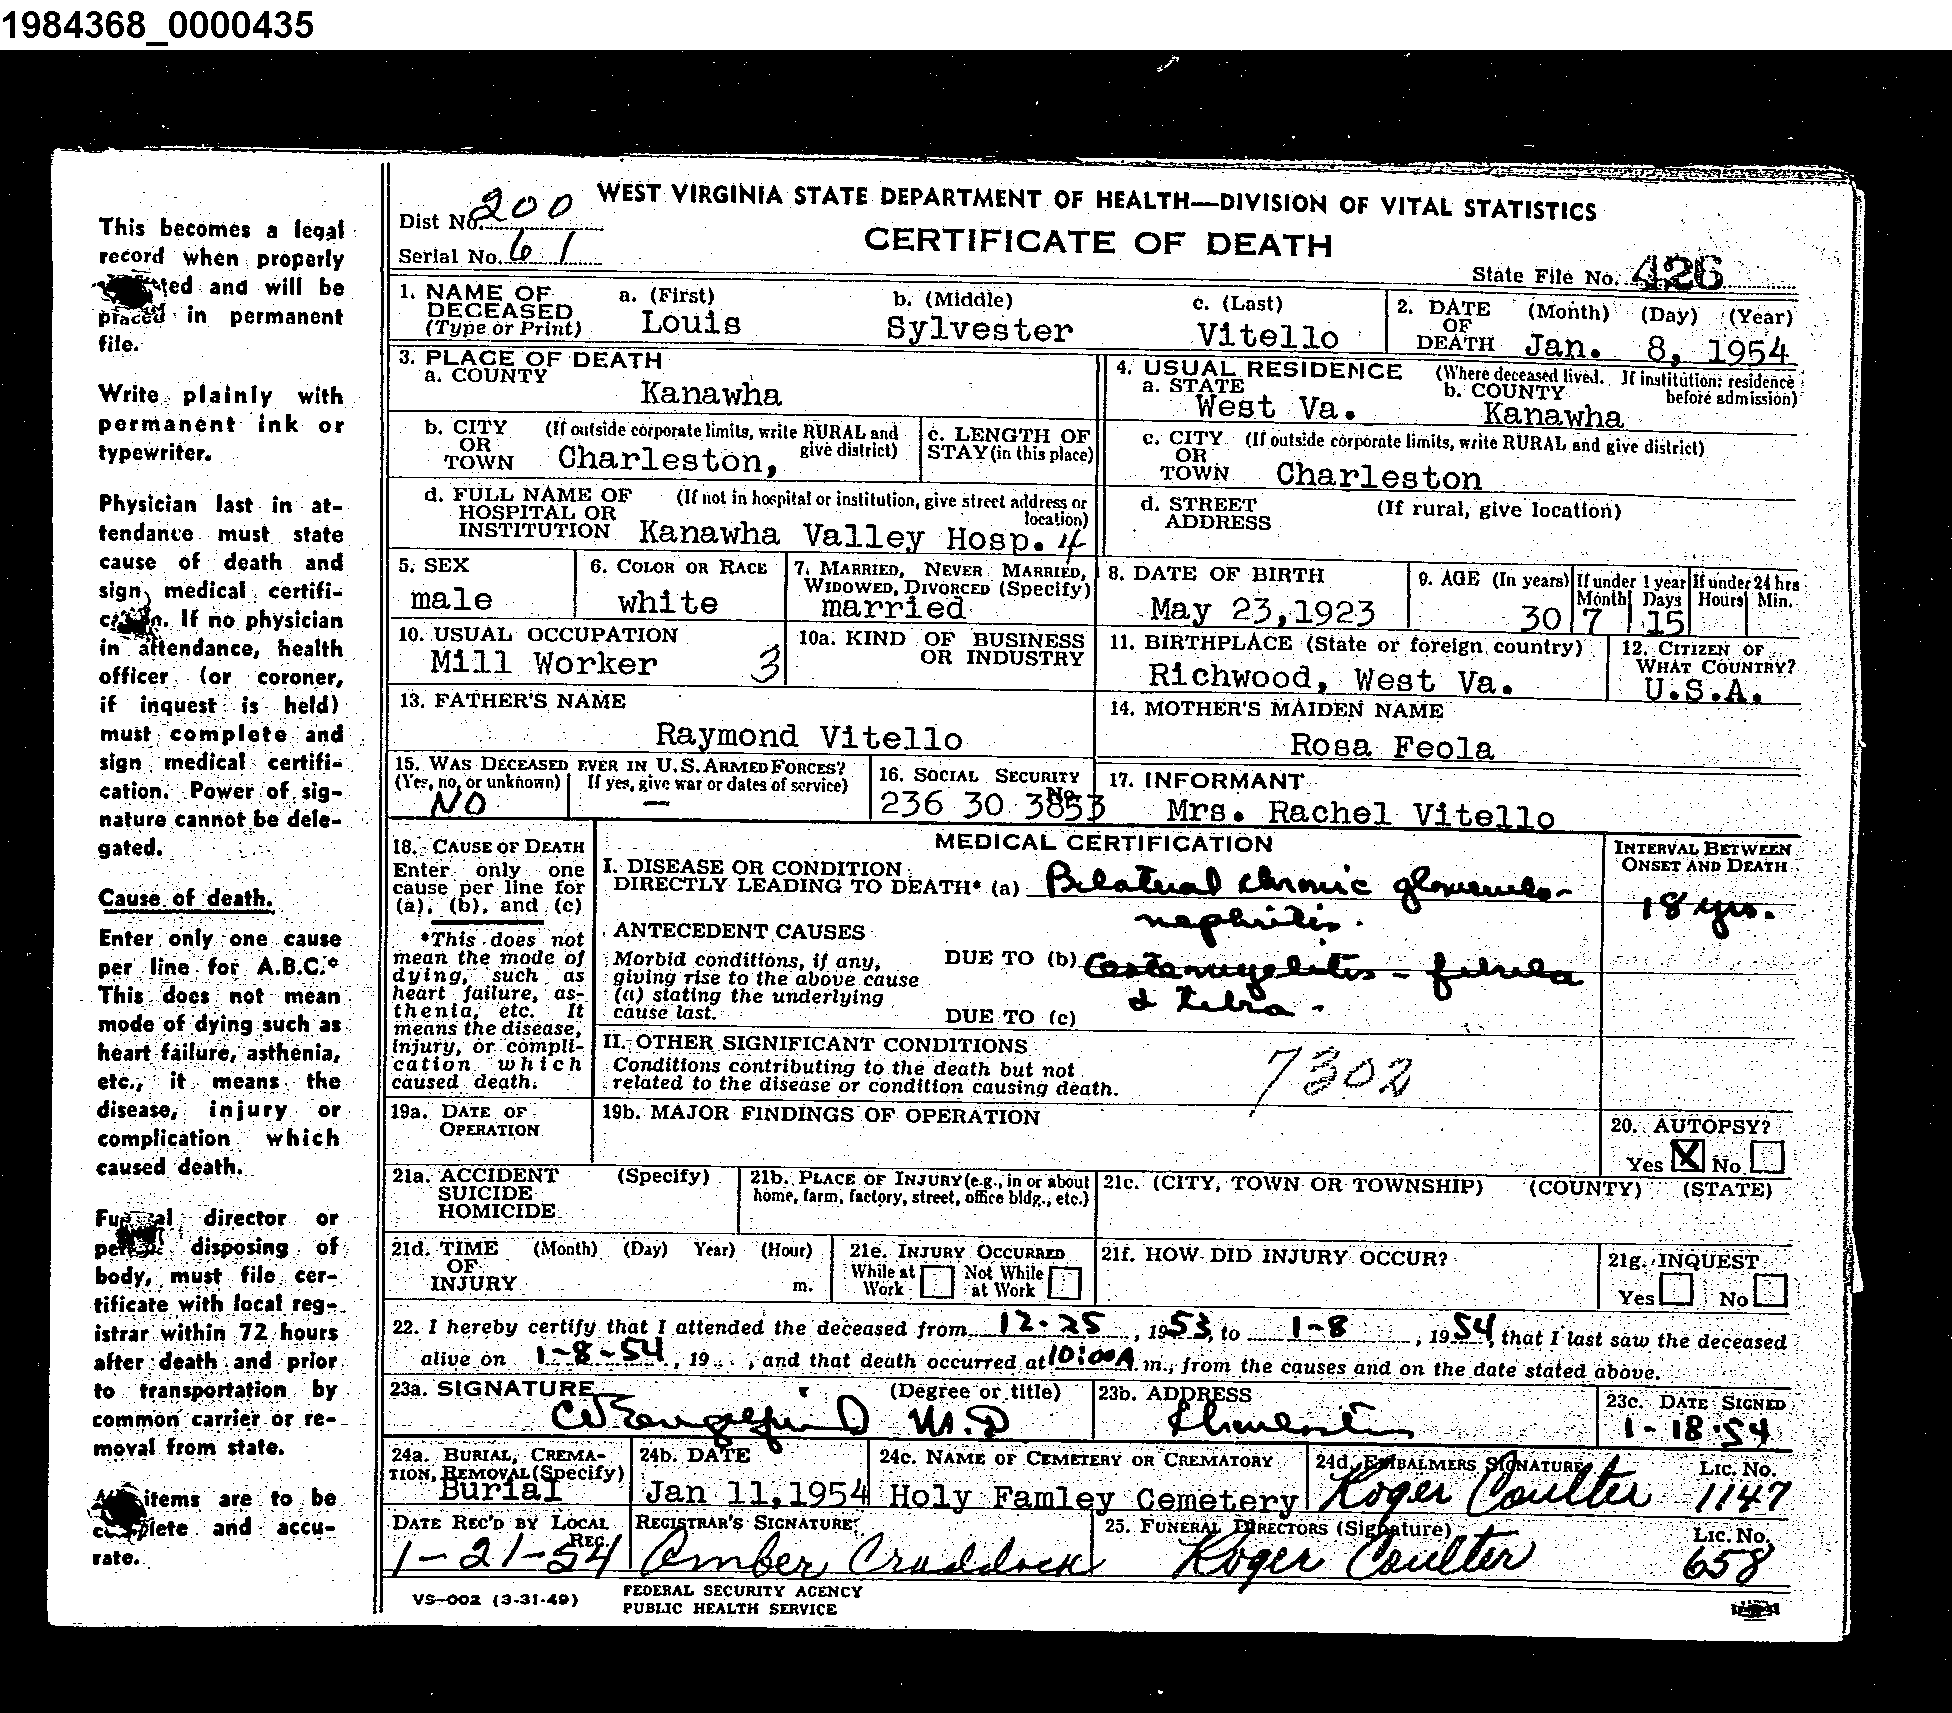 1984368_0000435
This becomes a legal
record when properly
and will be
placed in permanent
file.
Write plainly with
permanent ink or
typewriter.
Physician last in at-
tendance must state
cause of death and
sign medical certifi-
If no physician
in attendance, health
officer (or coroner,
if inquest is held)
must complete and
sign medical certifi-
cation. Power of sig-
nature cannot be dele-
gated.
Cause of death.
Enter only one cause
per line for A.B.C.*
This does not mean
mode of dying such as
heart failure, asthenia,
etc., it means the
disease, injury or
complication which
caused death.
Funeral director or
disposing of
body, must file cer-
tificate with local reg-
istrar within 72 hours
after death and prior
to transportation by
common carrier or re-
moval from state.
items are to be
complete and accu-
rate.
WEST VIRGINIA STATE DEPARTMENT OF HEALTH—DIVISION OF VITAL STATISTICS
Dist No. 200
CERTIFICATE OF DEATH
Serial No. 61
State File No. 426
1. NAME OF DECEASED (Type or Print) a. (First) b. (Middle) c. (Last)
Louis Sylvester Vitello
2. DATE OF DEATH (Month) (Day) (Year)
Jan. 8, 1954
3. PLACE OF DEATH
a. COUNTY
Kanawha
4. USUAL RESIDENCE (Where deceased lived. If institution: residence before admission)
a. STATE b. COUNTY
West Va. Kanawha
b. CITY OR TOWN (If outside corporate limits, write RURAL and give district)
Charleston,
c. LENGTH OF STAY (in this place)
c. CITY OR TOWN (If outside corporate limits, write RURAL and give district)
Charleston
d. FULL NAME OF HOSPITAL OR INSTITUTION (If not in hospital or institution, give street address or location)
Kanawha Valley Hosp. 4
d. STREET ADDRESS (If rural, give location)
5. SEX
male
6. COLOR OR RACE
white
7. MARRIED, NEVER MARRIED, WIDOWED, DIVORCED (Specify)
married
8. DATE OF BIRTH
May 23,1923
9. AGE (In years) If under 1 year Month Days If under 24 hrs Hours Min.
30 7 15
10. USUAL OCCUPATION
Mill Worker 3
10a. KIND OF BUSINESS OR INDUSTRY
11. BIRTHPLACE (State or foreign country)
Richwood, West Va.
12. CITIZEN OF WHAT COUNTRY?
U.S.A.
13. FATHER'S NAME
Raymond Vitello
14. MOTHER'S MAIDEN NAME
Rosa Feola
15. WAS DECEASED EVER IN U.S. ARMED FORCES?
(Yes, no, or unknown) If yes, give war or dates of service)
NO —
16. SOCIAL SECURITY No.
236 30 3853
17. INFORMANT
Mrs. Rachel Vitello
18. CAUSE OF DEATH
Enter only one
cause per line for
(a), (b), and (c)
*This does not
mean the mode of
dying, such as
heart failure, as-
thenia, etc. It
means the disease,
injury, or compli-
cation which
caused death.
MEDICAL CERTIFICATION
INTERVAL BETWEEN ONSET AND DEATH
I. DISEASE OR CONDITION
DIRECTLY LEADING TO DEATH* (a) Bilateral chronic glomerulo-
nephritis. 18 yrs.
ANTECEDENT CAUSES
Morbid conditions, if any,
giving rise to the above cause
(a) stating the underlying
cause last.
DUE TO (b) Osteomyelitis – fibula
& tibia.
DUE TO (c)
II. OTHER SIGNIFICANT CONDITIONS
Conditions contributing to the death but not
related to the disease or condition causing death.
7302
19a. DATE OF OPERATION
19b. MAJOR FINDINGS OF OPERATION
20. AUTOPSY?
Yes X No
21a. ACCIDENT SUICIDE HOMICIDE (Specify)
21b. PLACE OF INJURY (e.g., in or about home, farm, factory, street, office bldg., etc.)
21c. (CITY, TOWN OR TOWNSHIP) (COUNTY) (STATE)
21d. TIME OF INJURY (Month) (Day) Year) (Hour) m.
21e. INJURY OCCURRED
While at Work Not While at Work
21f. HOW DID INJURY OCCUR?
21g. INQUEST
Yes No
22. I hereby certify that I attended the deceased from 12-25, 1953, to 1-8, 1954, that I last saw the deceased
alive on 1-8-54, 19..., and that death occurred at 10:00A m., from the causes and on the date stated above.
23a. SIGNATURE (Degree or title)
M.D
23b. ADDRESS
Charleston
23c. DATE SIGNED
1-18-54
24a. BURIAL, CREMA-
TION, REMOVAL (Specify)
Burial
24b. DATE
Jan 11,1954
24c. NAME OF CEMETERY OR CREMATORY
Holy Famley Cemetery
24d. EMBALMERS SIGNATURE LIC. NO.
Roger Coulter 1147
DATE REC'D BY LOCAL REG.
1-21-54
REGISTRAR'S SIGNATURE
Amber Craddock
25. FUNERAL DIRECTORS (Signature) LIC. NO.
Roger Coulter 658
VS-002 (3-31-49)
FEDERAL SECURITY AGENCY
PUBLIC HEALTH SERVICE